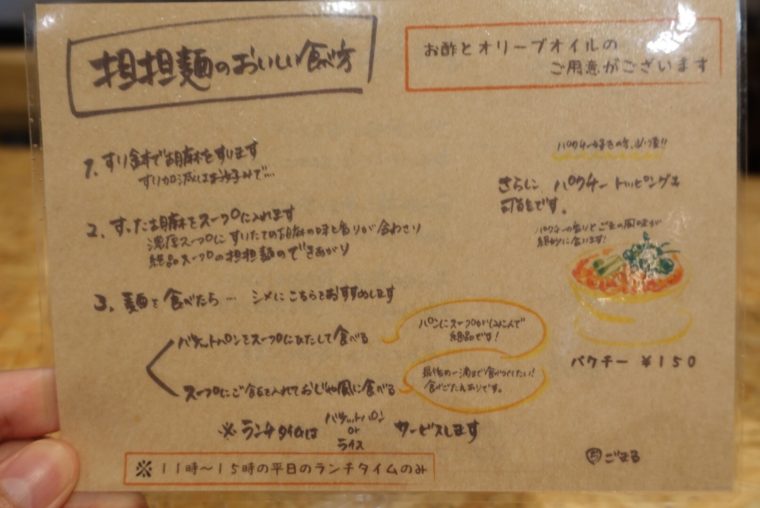 担担麺のおいしい食べ方
お酢とオリーブオイルの
ご用意がございます
1. すり鉢で胡麻をすります
すり加減はお好みで…
2. すった胡麻をスープに入れます
濃厚スープにすりたての胡麻の味と香りが合わさり
絶品スープの担担麺のできあがり
3. 麺を食べたら… シメにこちらをおすすめします
バケットパンをスープにひたして食べる
パンにスープがしみこんで
絶品です!
スープにご飯を入れておじや風に食べる
最後の一滴まで食べつくしたい!
食べごたえありです。
※ ランチタイムは バケットパン or ライス サービスします
※11時〜15時の平日のランチタイムのみ
パクチー好きの方、必須!!
さらに パクチートッピングも
可能です。
パクチーの香りとごまの風味が
絶妙に合います!
パクチー ¥150
ごまる